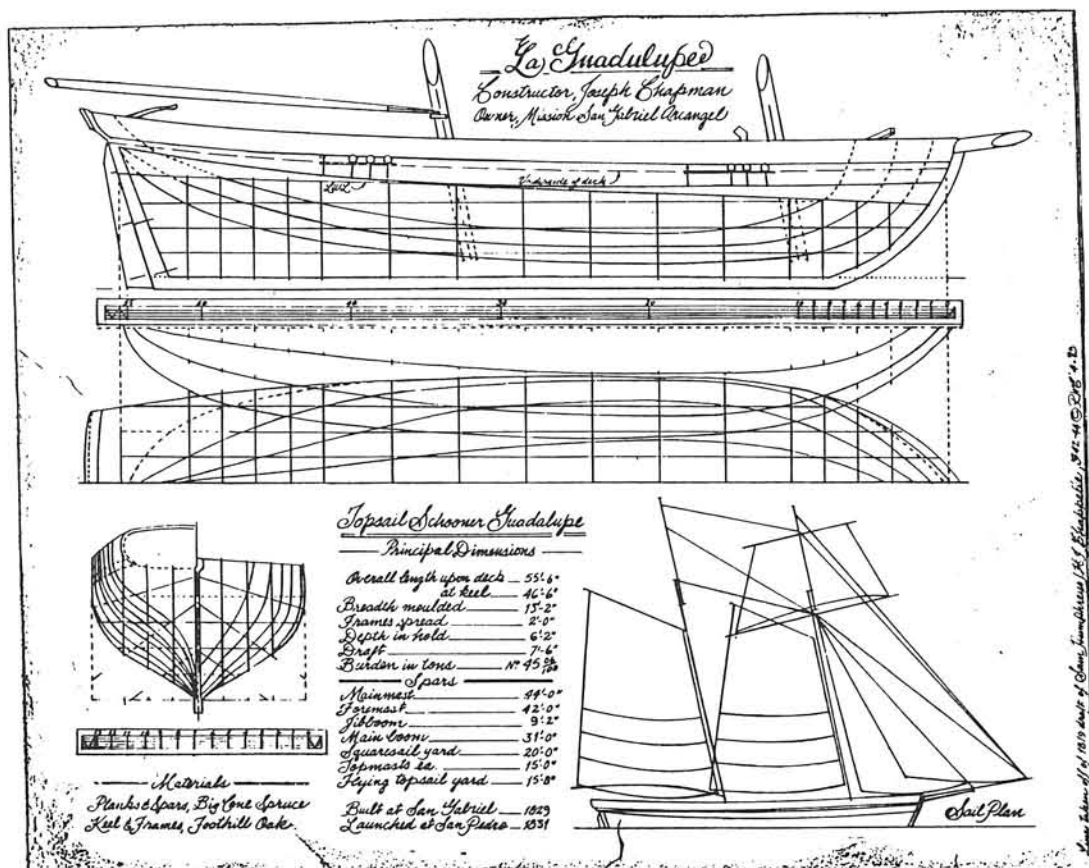 La Guadulupee
Constructor, Joseph Chapman
Owner, Mission San Gabriel Arcangel
LWL
Underside of deck
Topsail Schooner Guadalupe
Principal Dimensions
Overall length upon deck 55'-6"
at keel 46'-6"
Breadth moulded 15'-2"
Frames spread 2'-0"
Depth in hold 6'-2"
Draft 7'-6"
Burden in tons Nº 45
Spars
Mainmast 44'-0"
Foremast 42'-0"
Jibboom 9'-2"
Main boom 31'-0"
Squaresail yard 20'-0"
Topmasts ea. 15'-0"
Flying topsail yard 15'-8"
Built at San Gabriel 1829
Launched at San Pedro 1831
Materials
Planks & Spars, Big Cone Spruce
Keel & Frames, Foothill Oak
Sail Plan